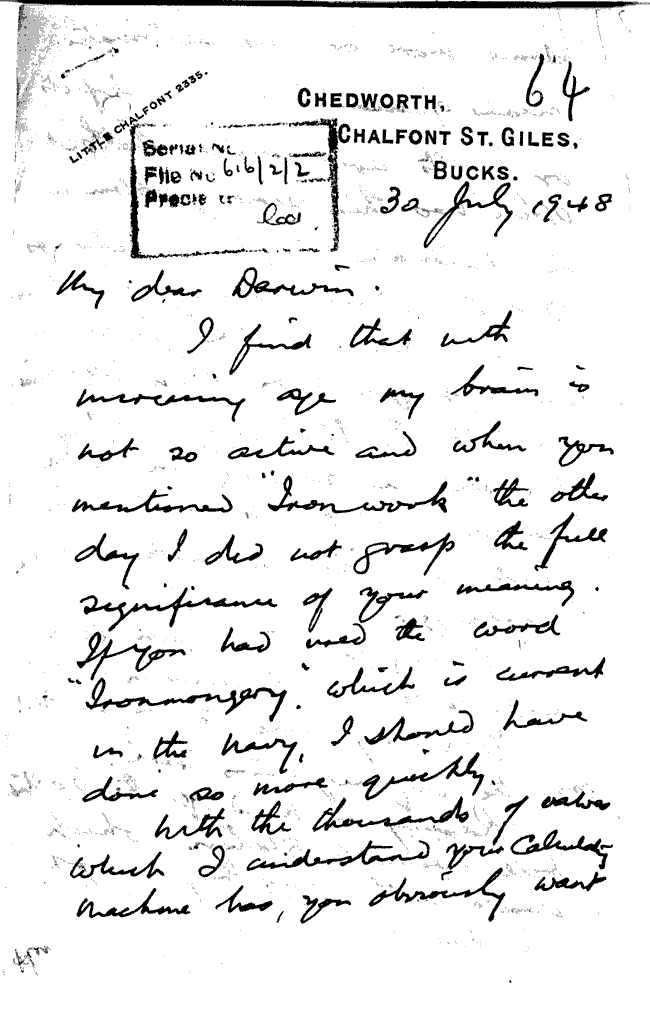 64
LITTLE CHALFONT 2335.
CHEDWORTH,
CHALFONT ST. GILES,
BUCKS.
Serial No
File No 616/2/2
30 July 1948
My dear Darwin.
I find that with
increasing age my brain is
not so active and when you
mentioned "Ironwork" the other
day I did not grasp the full
significance of your meaning.
If you had used the word
"Ironmongery", which is current
in the Navy, I should have
done so more quickly.
With the thousands of valves
which I understand your Calculating
machine has, you obviously want